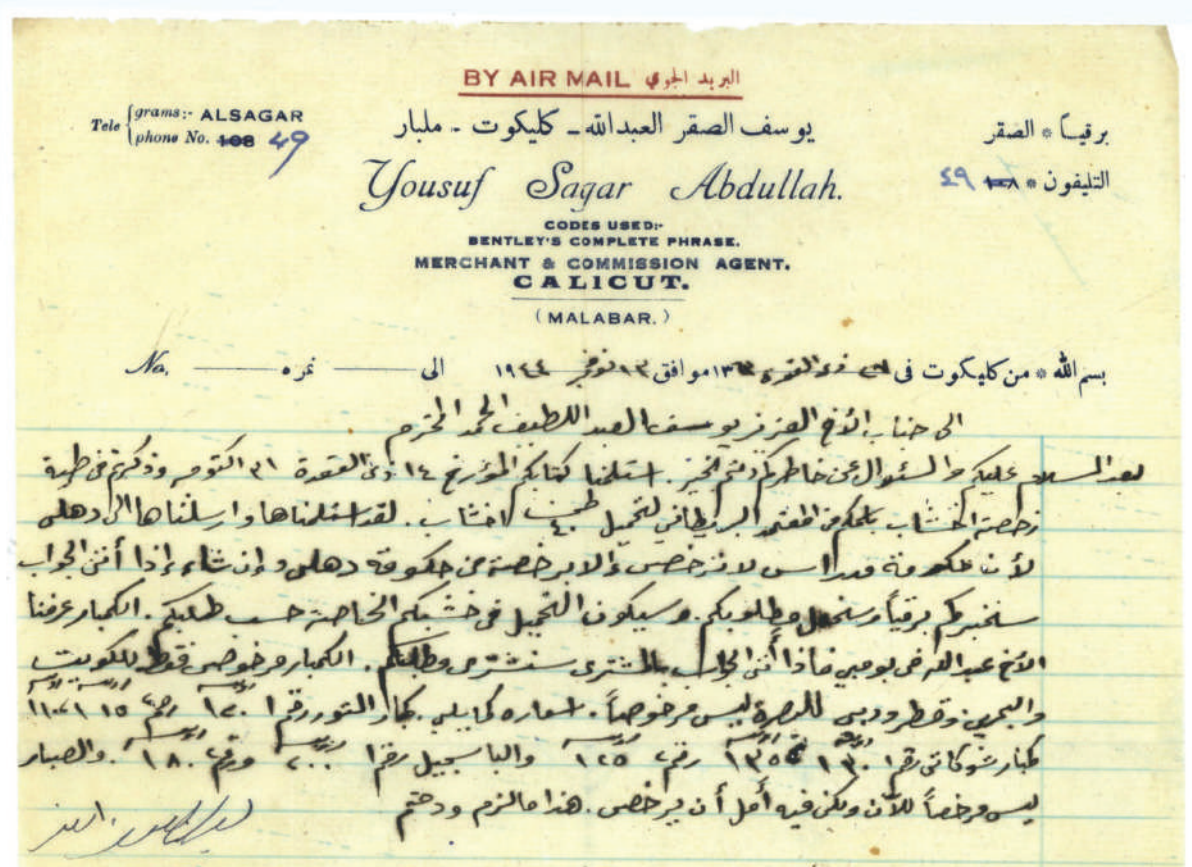 BY AIR MAIL البريد الجوي
Tele { grams:- ALSAGAR
phone No. 108 49
يوسف الصقر العبدالله - كليكوت - ملبار
برقياً * الصقر
التليفون * ١٠٨ ٤٩
Yousuf Sagar Abdullah.
CODES USED:-
BENTLEY'S COMPLETE PHRASE.
MERCHANT & COMMISSION AGENT.
CALICUT.
(MALABAR.)
بسم الله * من كليكوت في ذي القعدة ١٣٦٣ موافق ١٣ نوفمبر ١٩٤٤ الى ——— نمره ——— No.
الى جناب الأخ العزيز يوسف العبد اللطيف الحمد المحترم
بعد السلام عليكم والسئوال عن خاطركم دمتم بخير. استلمنا كتابكم المؤرخ ١٤ ذي القعدة ٣١ اكتوبر وذكرتم في طيه
رخصة الخشاب من المعتمد البريطاني لتحميل ٤٠ طن اخشاب. لقد استلمناها وارسلناها الى دهلى
لأن حكومة مدراس لا ترخص إلا برخصة من حكومة دهلى و إن شاء إذا أتى الجواب
سنخبركم برقياً وسنحمل مطلوبكم. وسيكون التحميل في خشبكم الخاصة حسب طلبكم. الكمبار عرفنا
الأخ عبدالله في بومبي فإذا أتى الجواب بالمشترى سنشترى مطلبكم. الكمبار مرخوص فقط للكويت
والبحرين وقطر ودبي للبصرة ليس مرخوصاً. اسعاره كما يلي. كمبار التور رقم ١ ١٢٠ رقم ٢ ١١٥
كمبار شوكاتى رقم ١ ١٣٠ ١٣٥ رقم ٢ ١٢٥ والباسجيل رقم ١ ٢٠٠ ورقم ٢ ١٨٠ والصبار
ليس مرخصاً للآن ولكن فيه أمل أن يرخص. هذا ما لزم ودمتم